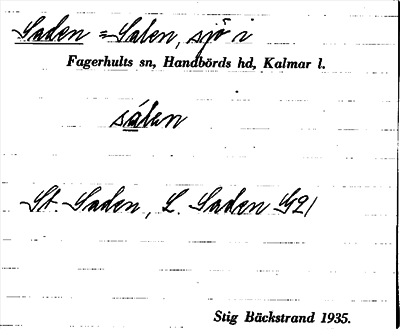 Saden = Salen, sjö i
Fagerhults sn, Handbörds hd, Kalmar l.
sálen
St. Saden, L. Saden G21
Stig Bäckstrand 1935.